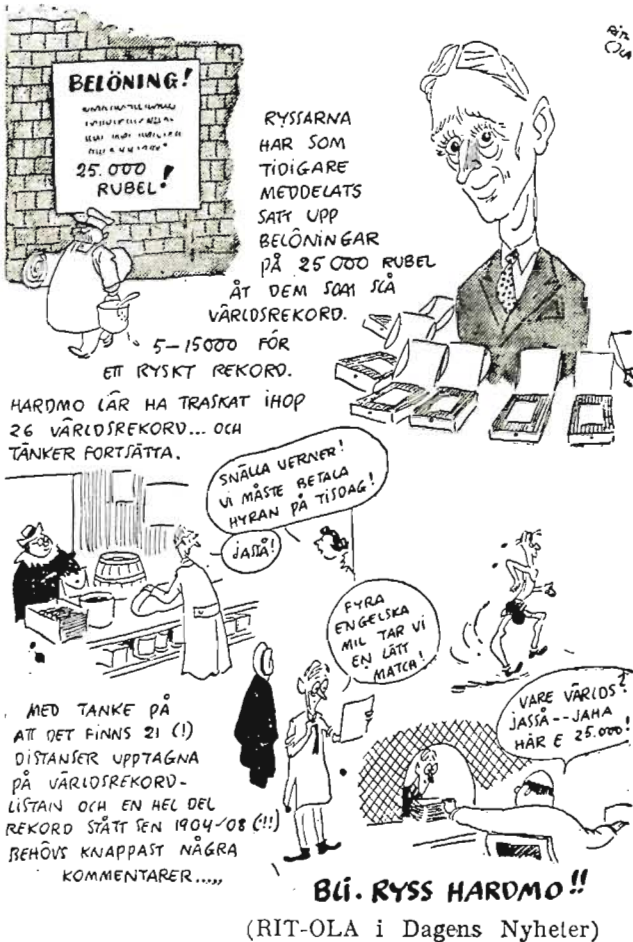 RIT
OLA
BELÖNING!
25.000
RUBEL!
RYSSARNA
HAR SOM
TIDIGARE
MEDDELATS
SATT UPP
BELÖNINGAR
PÅ 25000 RUBEL
ÅT DEM SOM SLÅ
VÄRLDSREKORD.
5–15000 FÖR
ETT RYSKT REKORD.
HARDMO LÄR HA TRASKAT IHOP
26 VÄRLDSREKORD... OCH
TÄNKER FORTSÄTTA.
SNÄLLA VERNER!
VI MÅSTE BETALA
HYRAN PÅ TISDAG!
JASSÅ!
FYRA
ENGELSKA
MIL TAR VI
EN LÄTT
MATCH!
VARE VÄRLDS?
JASSÅ--JAHA
HÄR E 25.000!
MED TANKE PÅ
ATT DET FINNS 21 (!)
DISTANSER UPPTAGNA
PÅ VÄRLDSREKORD-
LISTAN OCH EN HEL DEL
REKORD STÅTT SEN 1904/08 (!!)
BEHÖVS KNAPPAST NÅGRA
KOMMENTARER.....
BLI. RYSS HARDMO!!
(RIT-OLA i Dagens Nyheter)